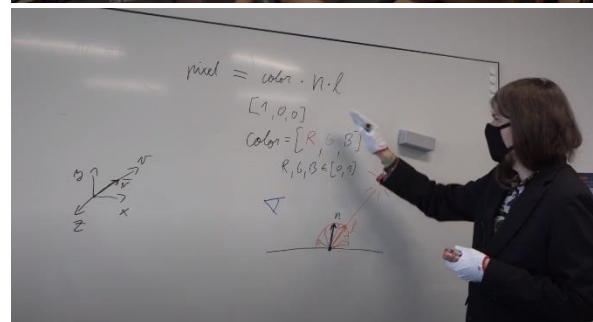 pixel = color · n · l
[1,0,0]
color = [R,G,B]
R,G,B ∈ [0,1]
y
v
v
x
z
n
l